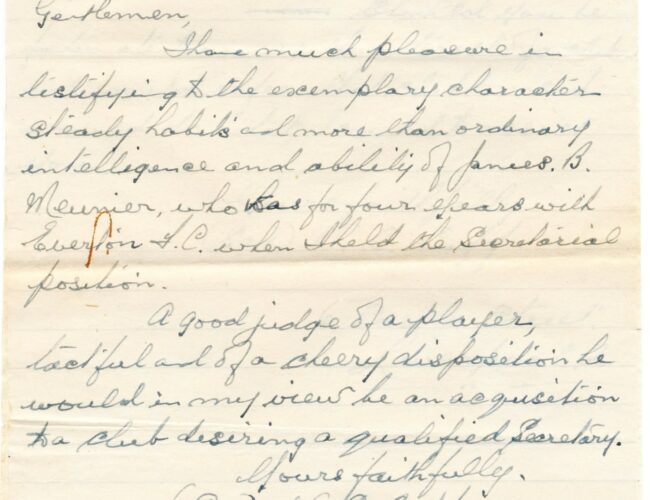 Gentlemen,
I have much pleasure in
testifying to the exemplary character
steady habits and more than ordinary
intelligence and ability of James. B.
Meunier, who was for four years with
Everton F.C. when I held the Secretarial
position.
A good judge of a player,
tactful and of a cheery disposition he
would in my view be an acqusition
to a club desiring a qualified Secretary.
Yours faithfully.